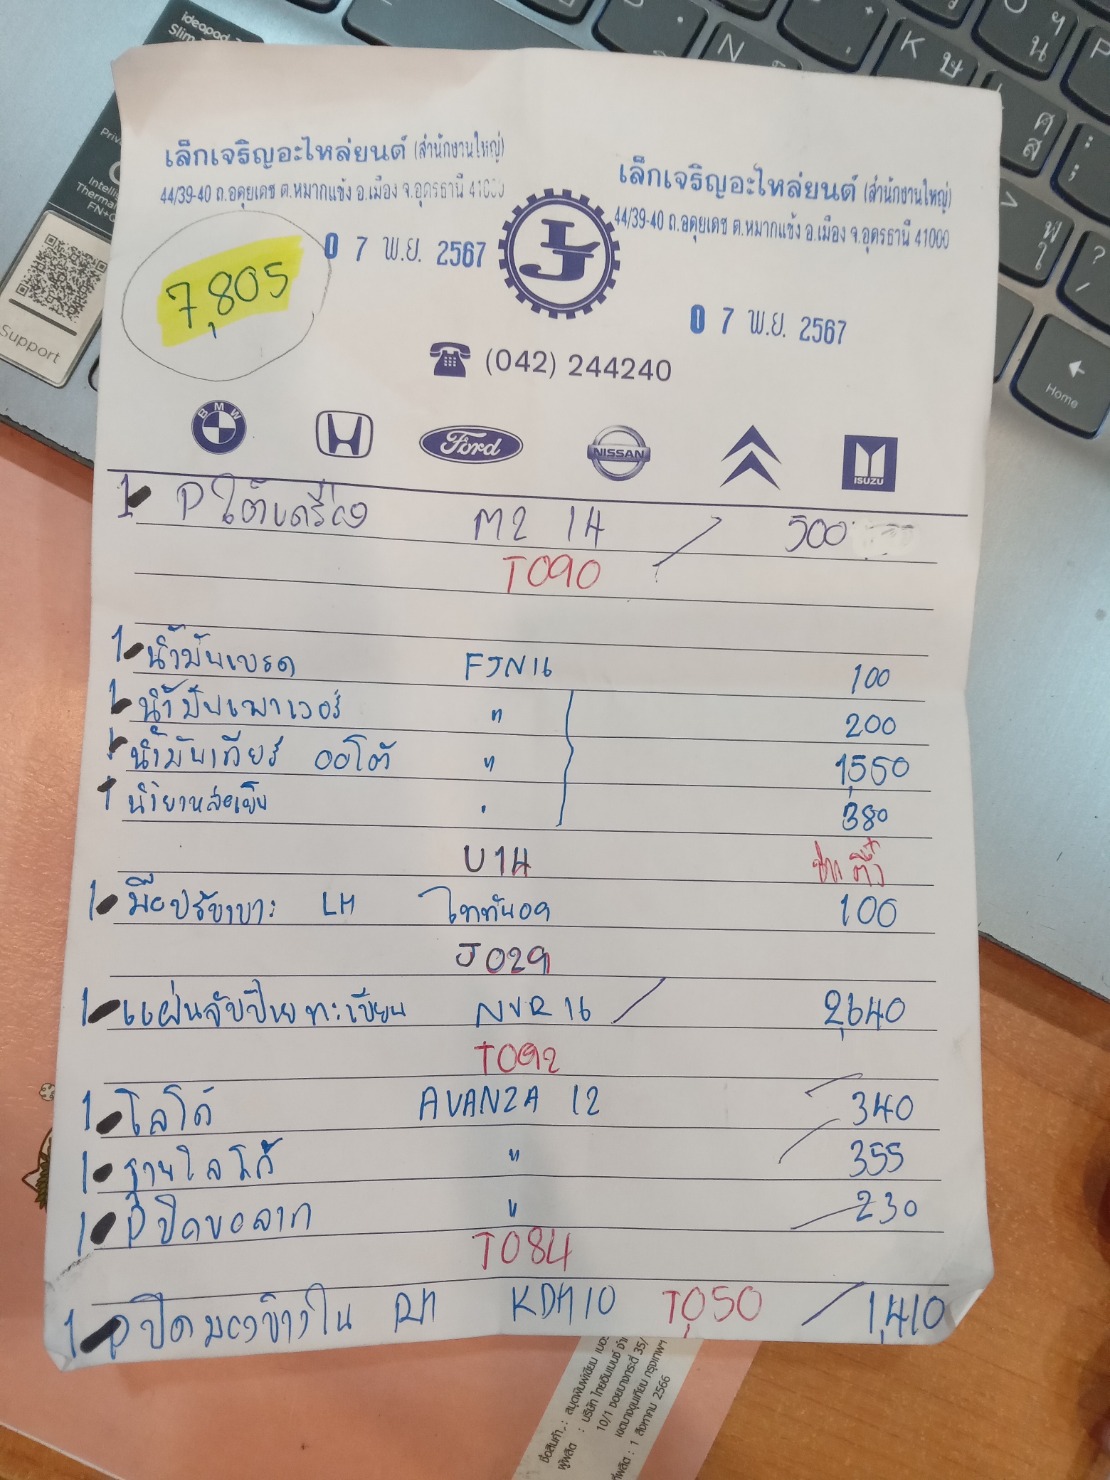 ideapad
Slim
Support
เล็กเจริญอะไหล่ยนต์ (สำนักงานใหญ่)
44/39-40 ถ.อดุยเดช ต.หมากแข้ง อ.เมือง จ.อุดรธานี 41000
0 7 พ.ย. 2567
7,805
LJ
เล็กเจริญอะไหล่ยนต์ (สำนักงานใหญ่)
44/39-40 ถ.อดุยเดช ต.หมากแข้ง อ.เมือง จ.อุดรธานี 41000
0 7 พ.ย. 2567
(042) 244240
BMW Ford NISSAN ISUZU
1 P ใต้เครื่อง M2 14 500
T090
1 น้ำมันเบรค FJN16 100
1 น้ำมันเพาเวอร์ " 200
1 น้ำมันเกียร์ ออโต้ " 1,550
1 น้ำยาหล่อเย็น " 380
U14
1 มือปรับเบาะ LH ไททันอล 100
J029
1 แผ่นจับป้ายทะเบียน NVR16 2,640
T092
1 โลโก้ AVANZA 12 340
1 ฐานโลโก้ " 355
1 P ปิดขอลาก " 230
T084
1 P ปิดมองข้างใน RH KDH10 T050 1,410
N
K ษ
P
น
ศ
ส
ฟ
?
/
Home
1 สิงหาคม 2566